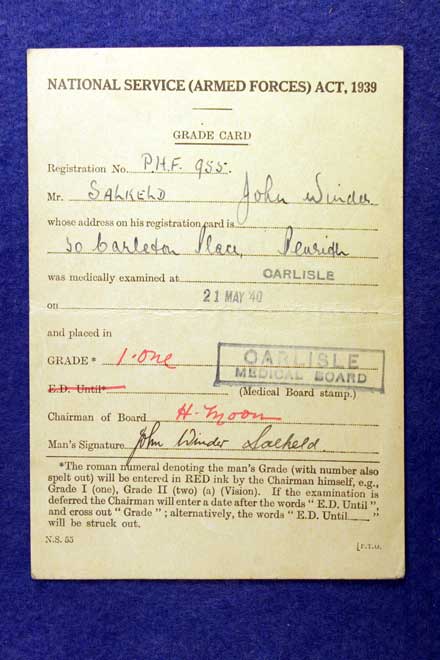 NATIONAL SERVICE (ARMED FORCES) ACT, 1939
GRADE CARD
Registration No. P.H.F. 955.
Mr. SALKELD John Winder
whose address on his registration card is
50 Carleton Place, Penrith
was medically examined at CARLISLE
on 21 MAY '40
and placed in
GRADE* 1. One
CARLISLE
MEDICAL BOARD
E.D. Until* (Medical Board stamp.)
Chairman of Board H. Moon
Man's Signature John Winder Salkeld.
*The roman numeral denoting the man's Grade (with number also
spelt out) will be entered in RED ink by the Chairman himself, e.g.,
Grade I (one), Grade II (two) (a) (Vision). If the examination is
deferred the Chairman will enter a date after the words "E.D. Until",
and cross out "Grade"; alternatively, the words "E.D. Until____"
will be struck out.
N.S. 55 [P.T.O.